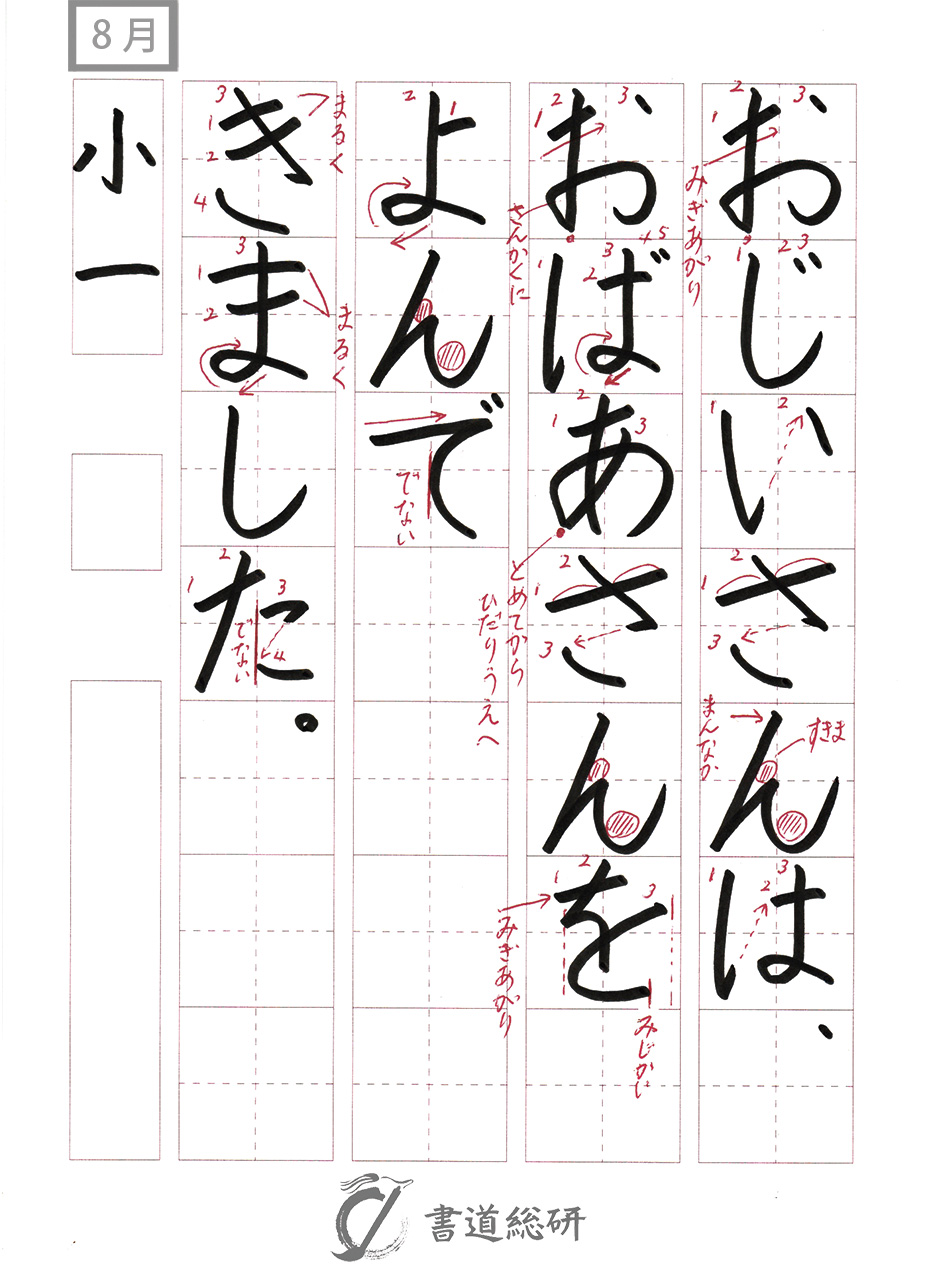 8月
おじいさんは、
おばあさんを
よんで
きました。
小一
みぎあがり
まんなか
すきま
さんかくに
とめてから
ひだりうえへ
みぎあがり
みじかい
でない
まるく
まるく
でない
書道総研